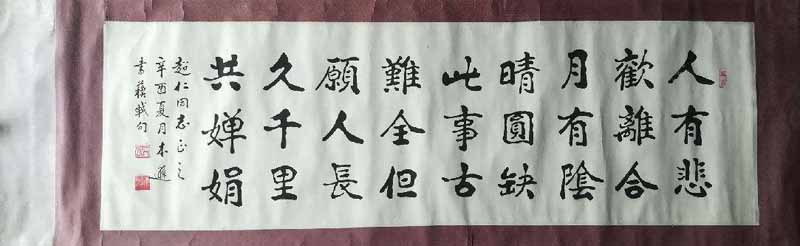 人有悲
歡離合
月有陰
晴圓缺
此事古
難全但
願人長
久千里
共嬋娟
超仁同志正之
辛酉夏月木遜
書蘇軾句